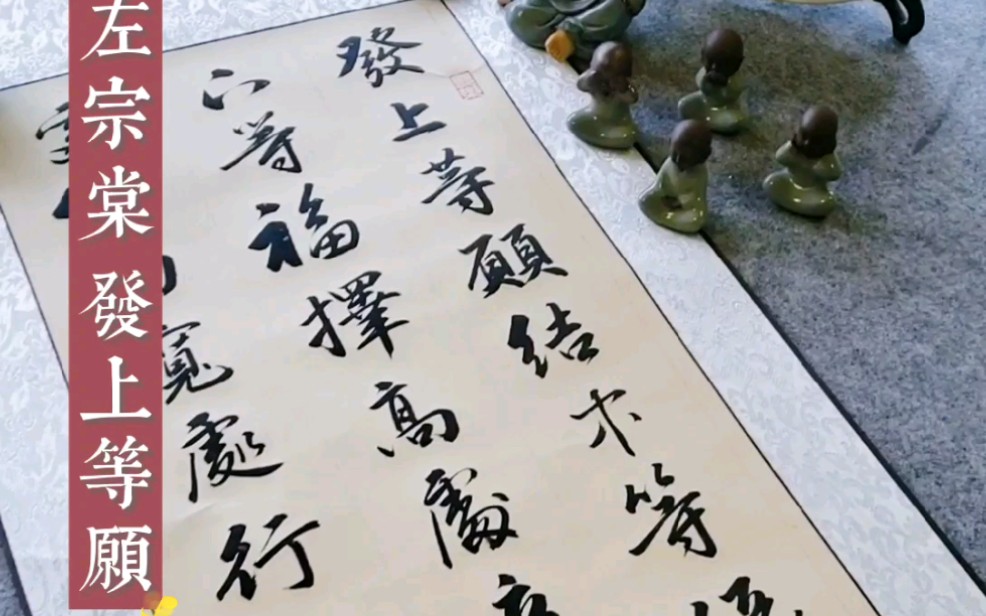 左宗棠 發上等願
發上等願結中等
下等福擇高處
寬處行